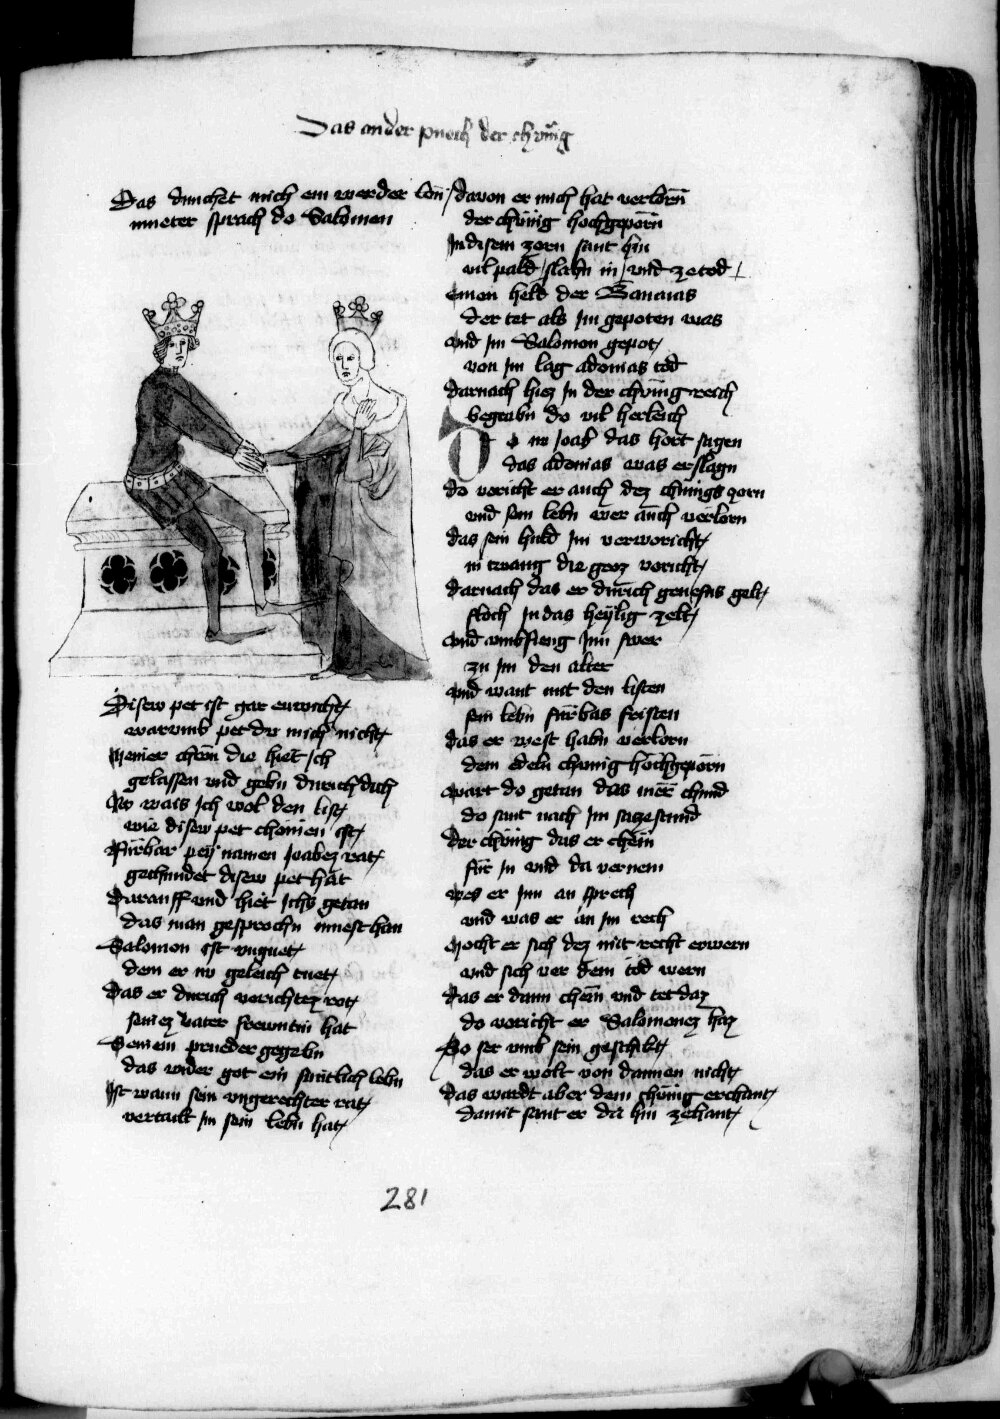 Das ander puech der chünig
Das dunchet mich ein werder lon
mueter sprach do Salomon
Disew pet ist gar enwicht
warumb pet du mich nicht
meiner chron die hiet ich
gelassen vnd gebn durich dich
No wais ich wol den list
wie disew pet chomen ist
Fürbar pey namen Joabez rat
gechundet disew pet hat
Darauff vnd hiet ichs getan
das man gesprochn muest han
Salomon ist vnguet
dem er no geleich tuet
Das er durich vorichtez rot
seinez vater frewntin hat
Seinem prueder gegebn
das vnder got ein suntlich lebn
Ist wann sein vngerechter rat
vertailt im sein lebn hat
davon er mich hat verlorn
der chünig hochgeporn
In disem zorn sant hin
vil pald slahn in vnd ze tod
einen held der Banaias
der tet als im gepoten was
vnd im Salomon gepot
von im lag adonias tod
darnach hiez in der chünig reich
begrabn do vil herleich
Do no Joab das hort sagen
das adonias was erslagn
do voricht er auch dez chünigs zorn
vnd sein lebn wer auch verlorn
das sein huld im verworicht
in twang die groz voricht
darnach das er durich genesns gelt
floch in das heylig zelt
vnd vmbfieng im swer
zu im den alter
vnd want mit den listen
sein lebn fürbas fristen
das er west habn verlorn
dem edeln chünig hochgeporn
wart do getan das mer chund
do sant nach im sazestund
der chünig das er chem
für in vnd da vernem
wes er inn an sprech
vnd was er an im rech
mocht er sich dez mit recht erwern
vnd sich vor dem tod wern
das er dann chem vnd tet daz
do voricht er Salomonez haz
So ser vmb sein geschicht
das er wolt von dannen nicht
das wardt aber dem chünig erchant
damit sant er da hin zehant
281